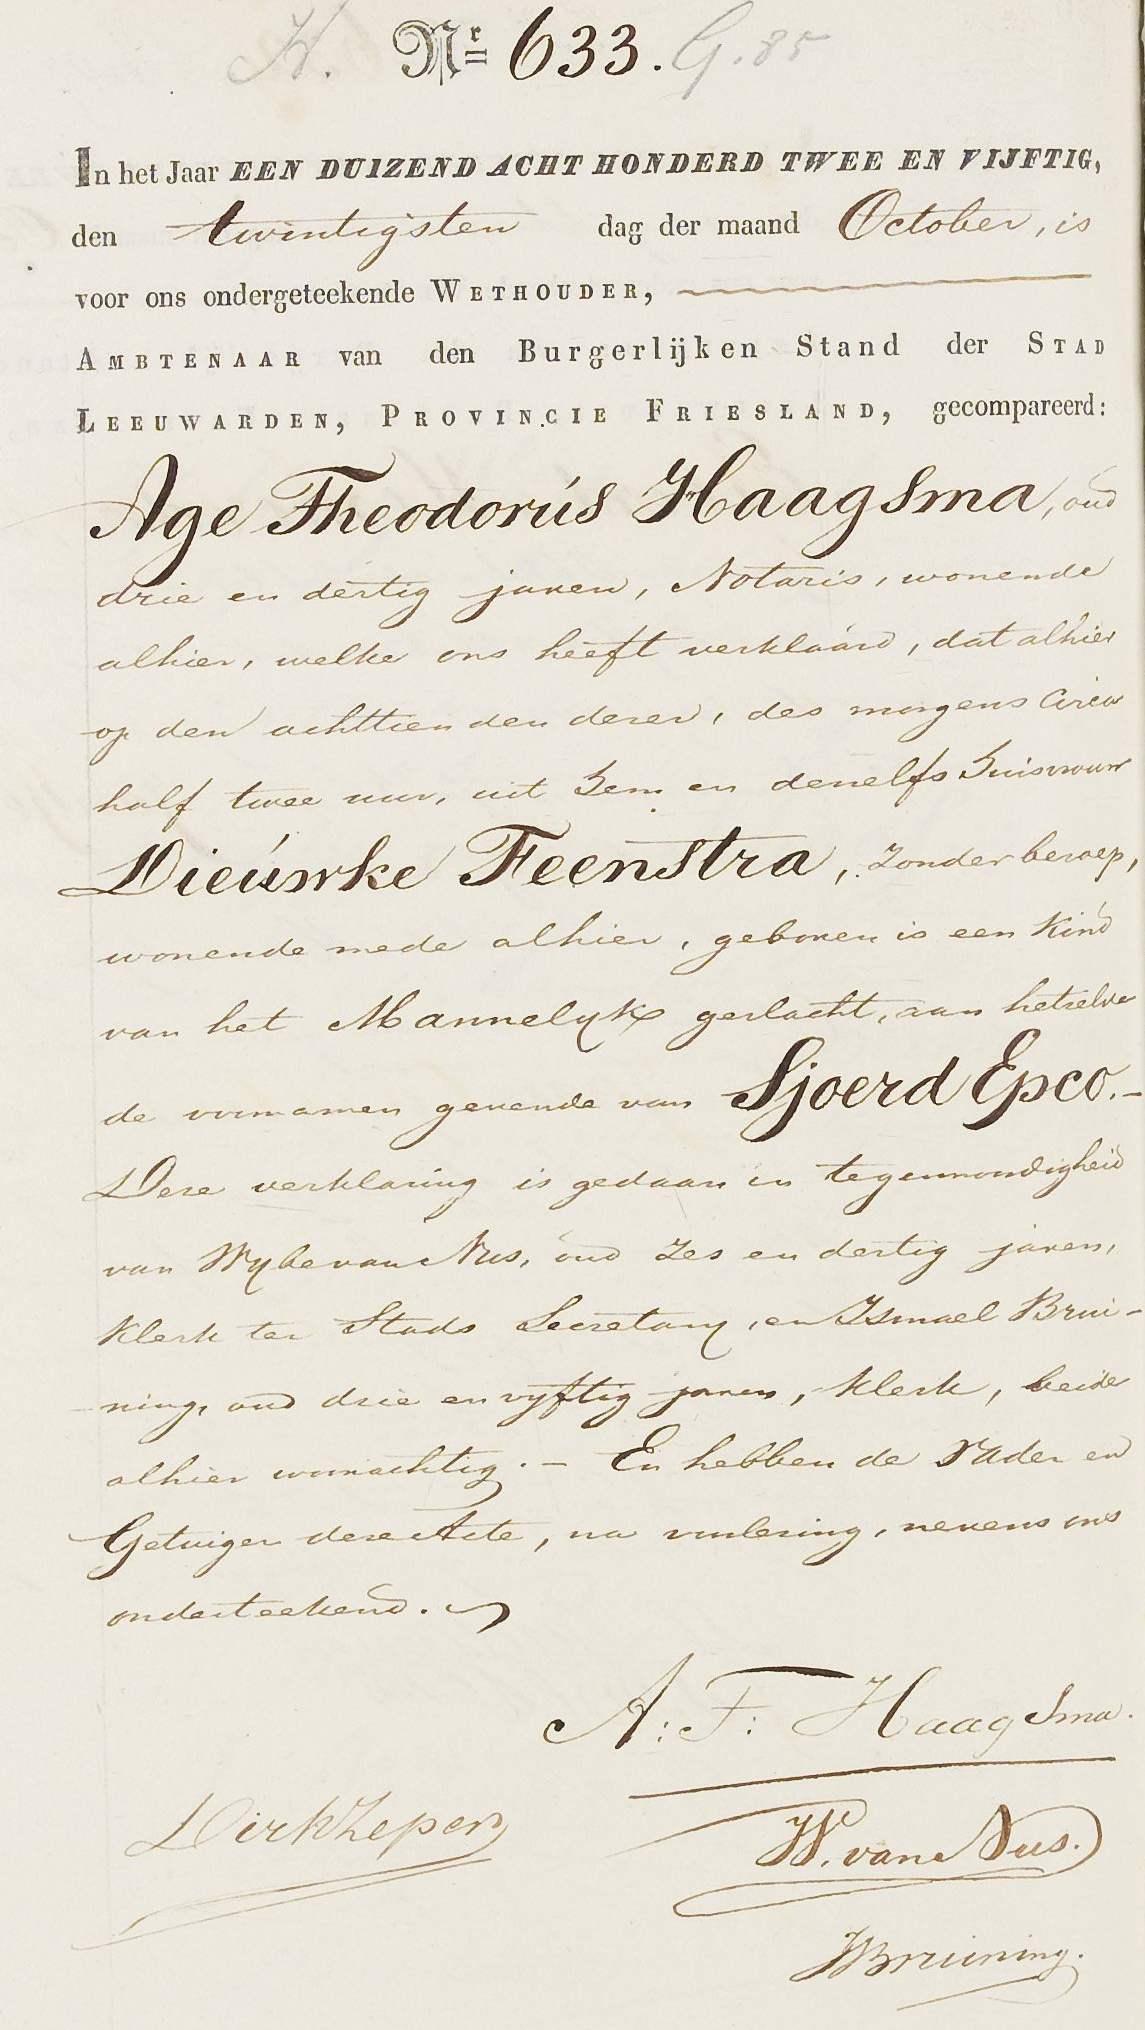 H. Nr 633. G. 85
In het Jaar EEN DUIZEND ACHT HONDERD TWEE EN VIJFTIG,
den twintigsten dag der maand October, is
voor ons ondergeteekende WETHOUDER,
AMBTENAAR van den Burgerlijken Stand der STAD
LEEUWARDEN, PROVINCIE FRIESLAND, gecompareerd:
Age Theodorús Haagsma, oud
drie en dertig jaren, Notaris, wonende
alhier, welke ons heeft verklaard, dat alhier
op den achttienden dezer, des morgens circa
half twee uur, uit hem en deszelfs huisvrouw
Dieúwke Feenstra, zonder beroep,
wonende mede alhier, geboren is een kind
van het Mannelyk geslacht, aan hetzelve
de voornamen gevende van Sjoerd Epco.-
Deze verklaring is gedaan in tegenwoordigheid
van Wybe van Nus, oud zes en dertig jaren,
klerk ter Stads Secretary, en Ismael Brui-
ning, oud drie en vyftig jaren, klerk, beide
alhier woonachtig. - En hebben de Vader en
Getuigen deze Acte, na voorlezing, nevens ons
onderteekend.
A: T: Haagsma.
Dirk Zeper
W. van Nus.
IBruining.